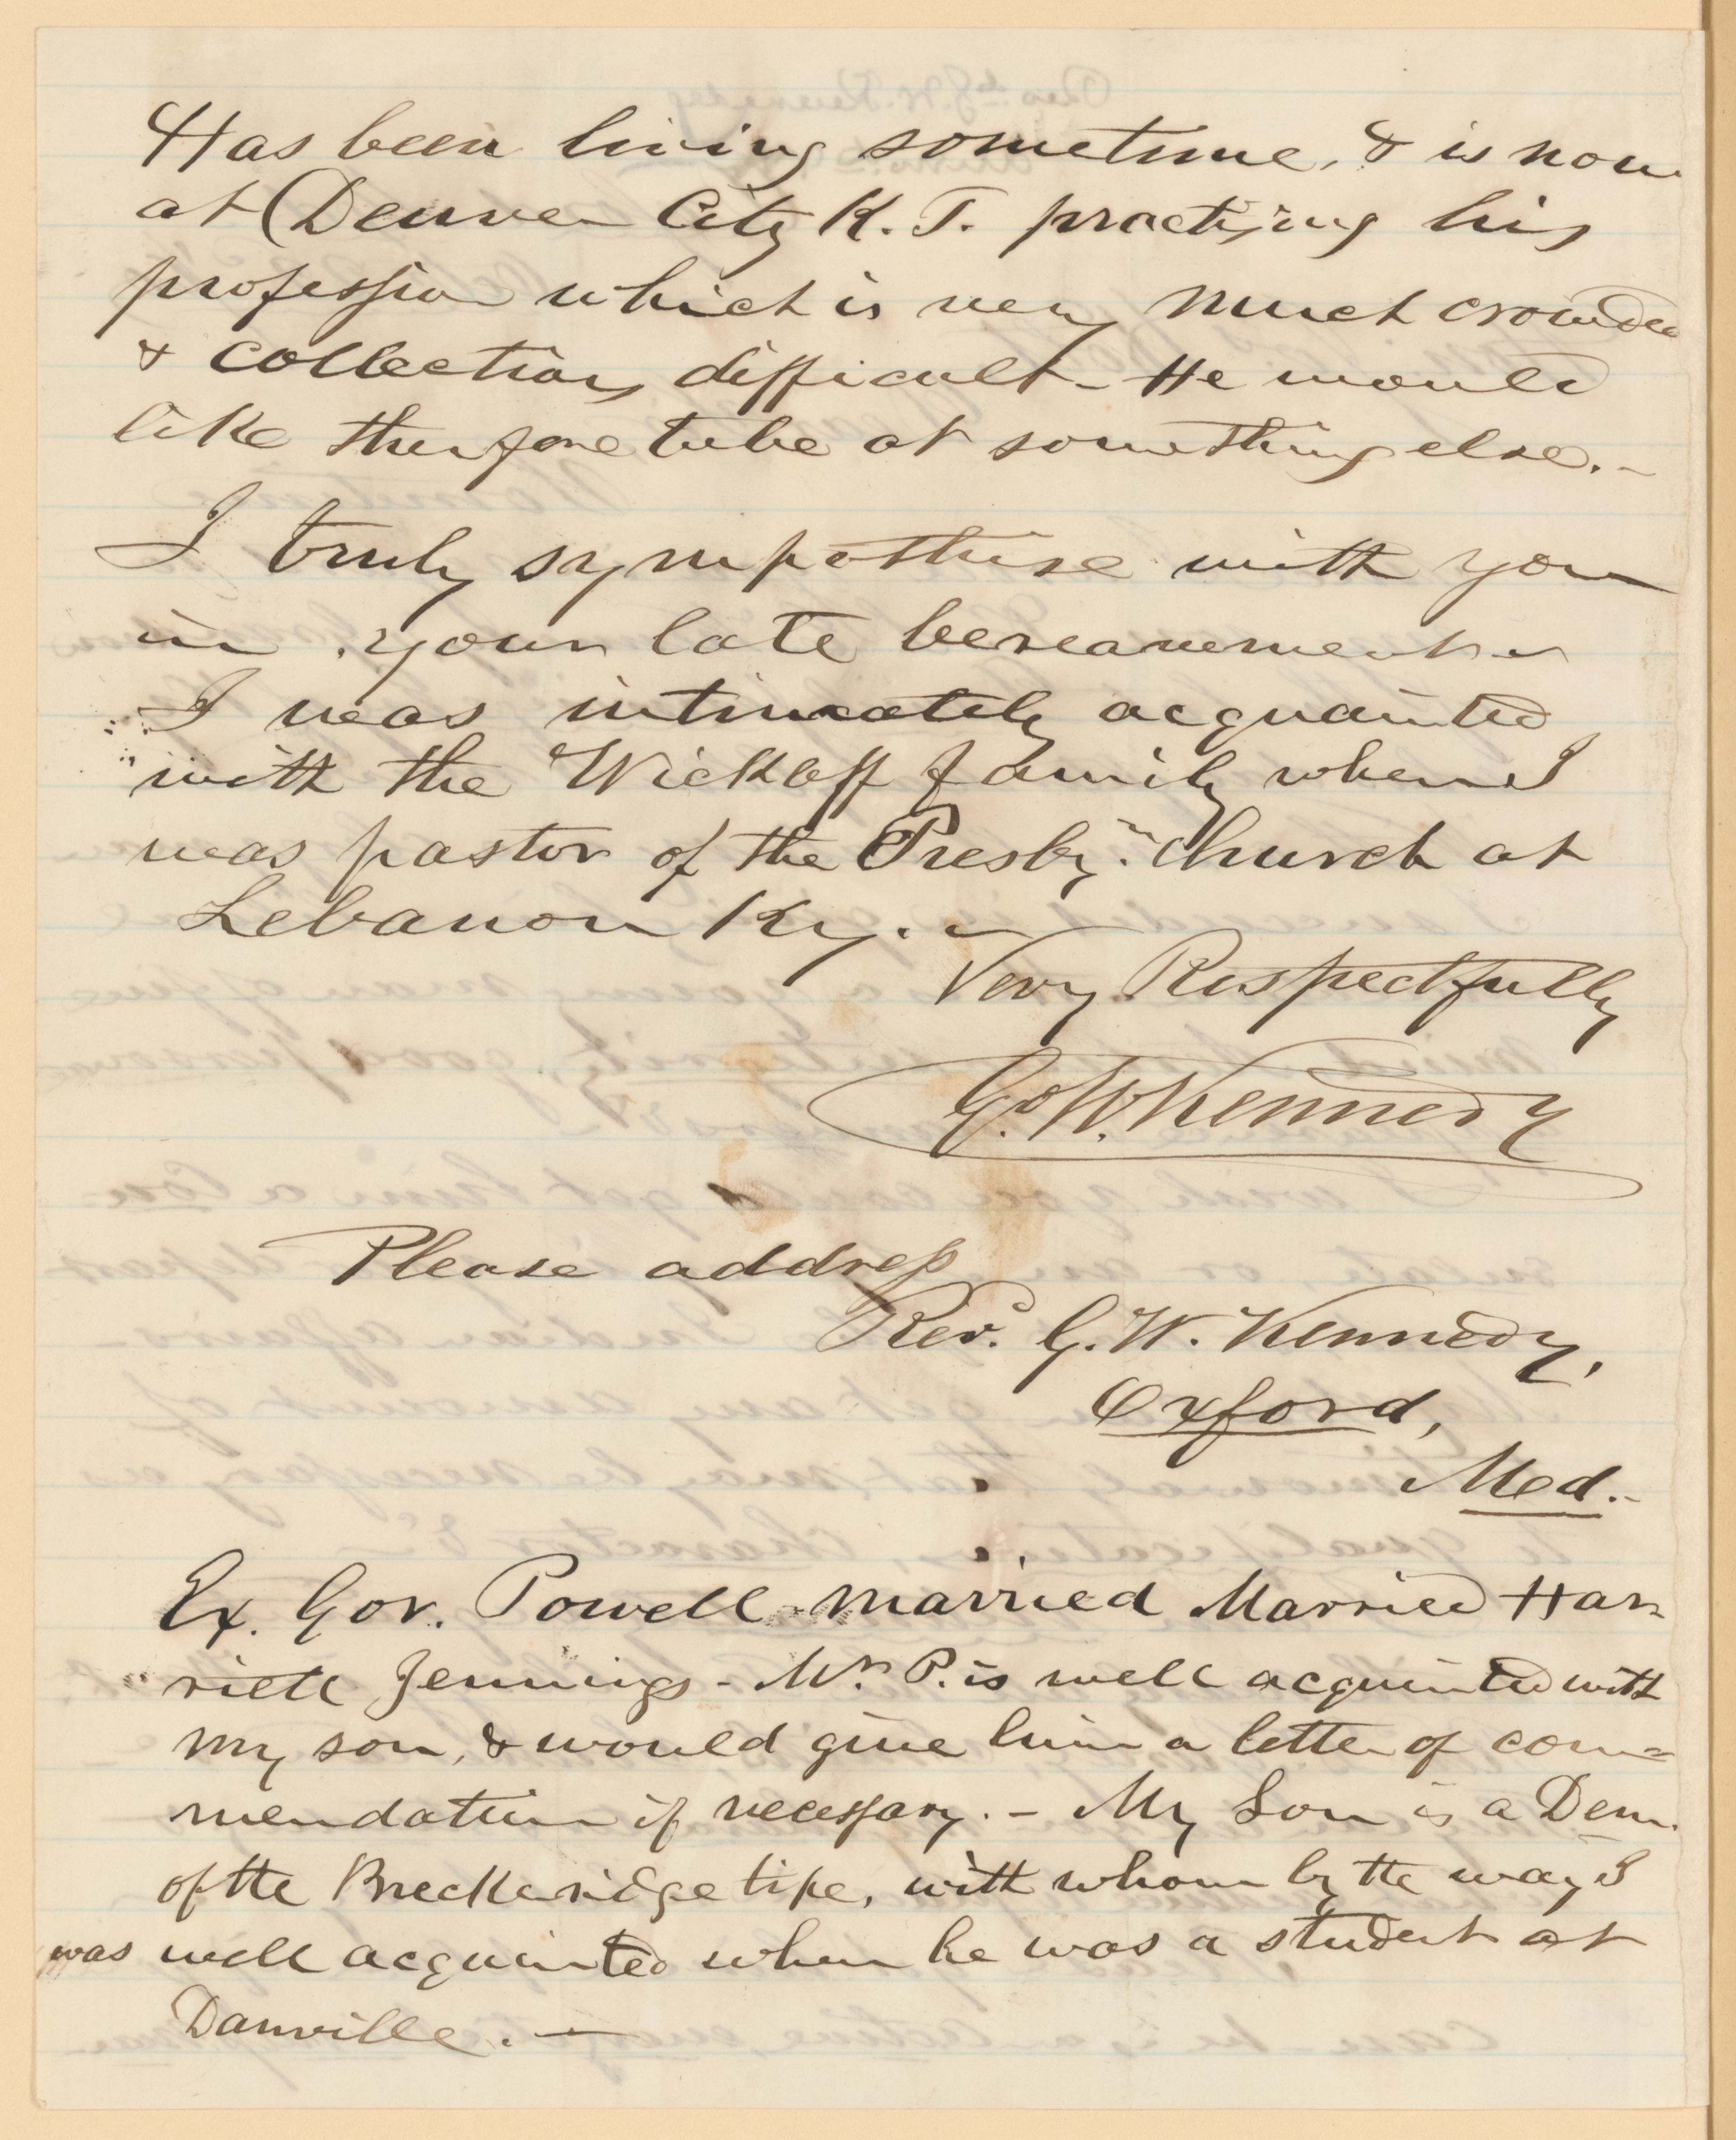 Has been living sometime, & is now
at Denver City K. T. practising his
profession which is very much crowded
& collections difficult - He would
like therefore to be at something else. -
I truly sympathise with you
in your late bereavement -
I was intimately acquainted
with the Wickliff family when I
was pastor of the Presbyn. church at
Lebanon Ky. -
Very Respectfully
G. W. Kennedy
Please address
Revd. G. W. Kennedy,
Oxford,
Med. -
Ex. Gov. Powell married Married Har
riett Jennings - Mr. P. is well acquinted with
my son, & would give him a letter of com=
mendation if necessary. - My Son is a Dem.
of the Breckenridge tipe, with whom by the way I
was well acquinted when he was a student at
Danville. -